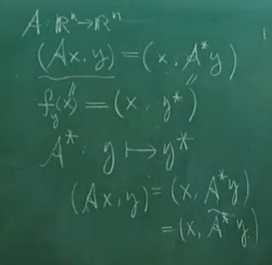 A: ℝⁿ→ℝⁿ
(Ax, y) = (x, A*y)
f_y(x) = (x, y*)
A*: y ↦ y*
(Ax, y) = (x, A*y)
= (x, Ã*y)